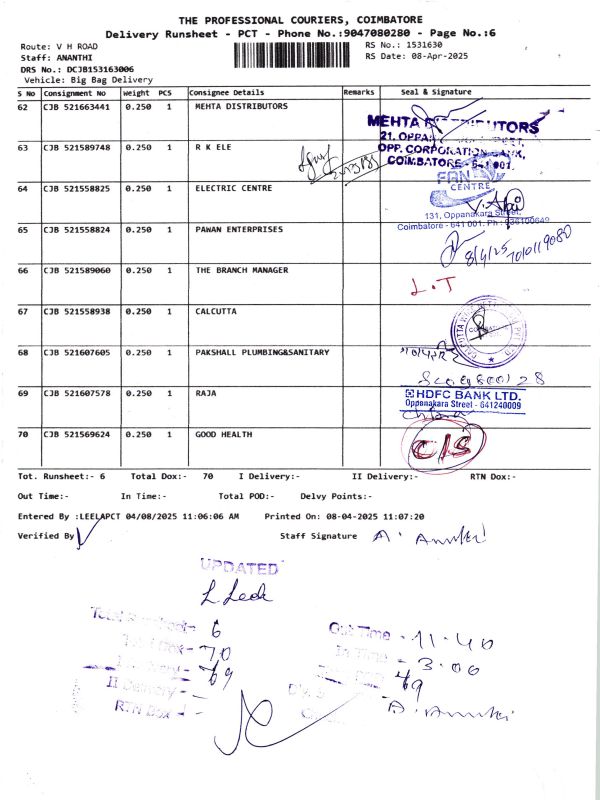 THE PROFESSIONAL COURIERS, COIMBATORE
Delivery Runsheet - PCT - Phone No.:9047080280 - Page No.:6
Route: V H ROAD
RS No.: 1531630
Staff: ANANTHI
RS Date: 08-Apr-2025
DRS No.: DCJB153163006
Vehicle: Big Bag Delivery
S No Consignment No Weight PCS Consignee Details Remarks Seal & Signature
62 CJB 521663441 0.250 1 MEHTA DISTRIBUTORS
MEHTA DISTRIBUTORS
21, OPPAN
OPP. CORPORATION BANK,
COIMBATORE - 641 001.
63 CJB 521589748 0.250 1 R K ELE
64 CJB 521558825 0.250 1 ELECTRIC CENTRE
FAN
CENTRE
131, Oppanakara Street,
Coimbatore - 641 001. Ph :
65 CJB 521558824 0.250 1 PAWAN ENTERPRISES
8/4/25
66 CJB 521589060 0.250 1 THE BRANCH MANAGER
L.T
67 CJB 521558938 0.250 1 CALCUTTA
68 CJB 521607605 0.250 1 PAKSHALL PLUMBING&SANITARY
69 CJB 521607578 0.250 1 RAJA
HDFC BANK LTD.
Oppanakara Street - 641240009
70 CJB 521569624 0.250 1 GOOD HEALTH
C/S
Tot. Runsheet:- 6 Total Dox:- 70 I Delivery:- II Delivery:- RTN Dox:-
Out Time:- In Time:- Total POD:- Delvy Points:-
Entered By :LEELAPCT 04/08/2025 11:06:06 AM Printed On: 08-04-2025 11:07:20
Verified By
Staff Signature
UPDATED
6
Out Time - 11-40
70
In Time - 3-06
69
69
II Delivery -
RTN Dox -